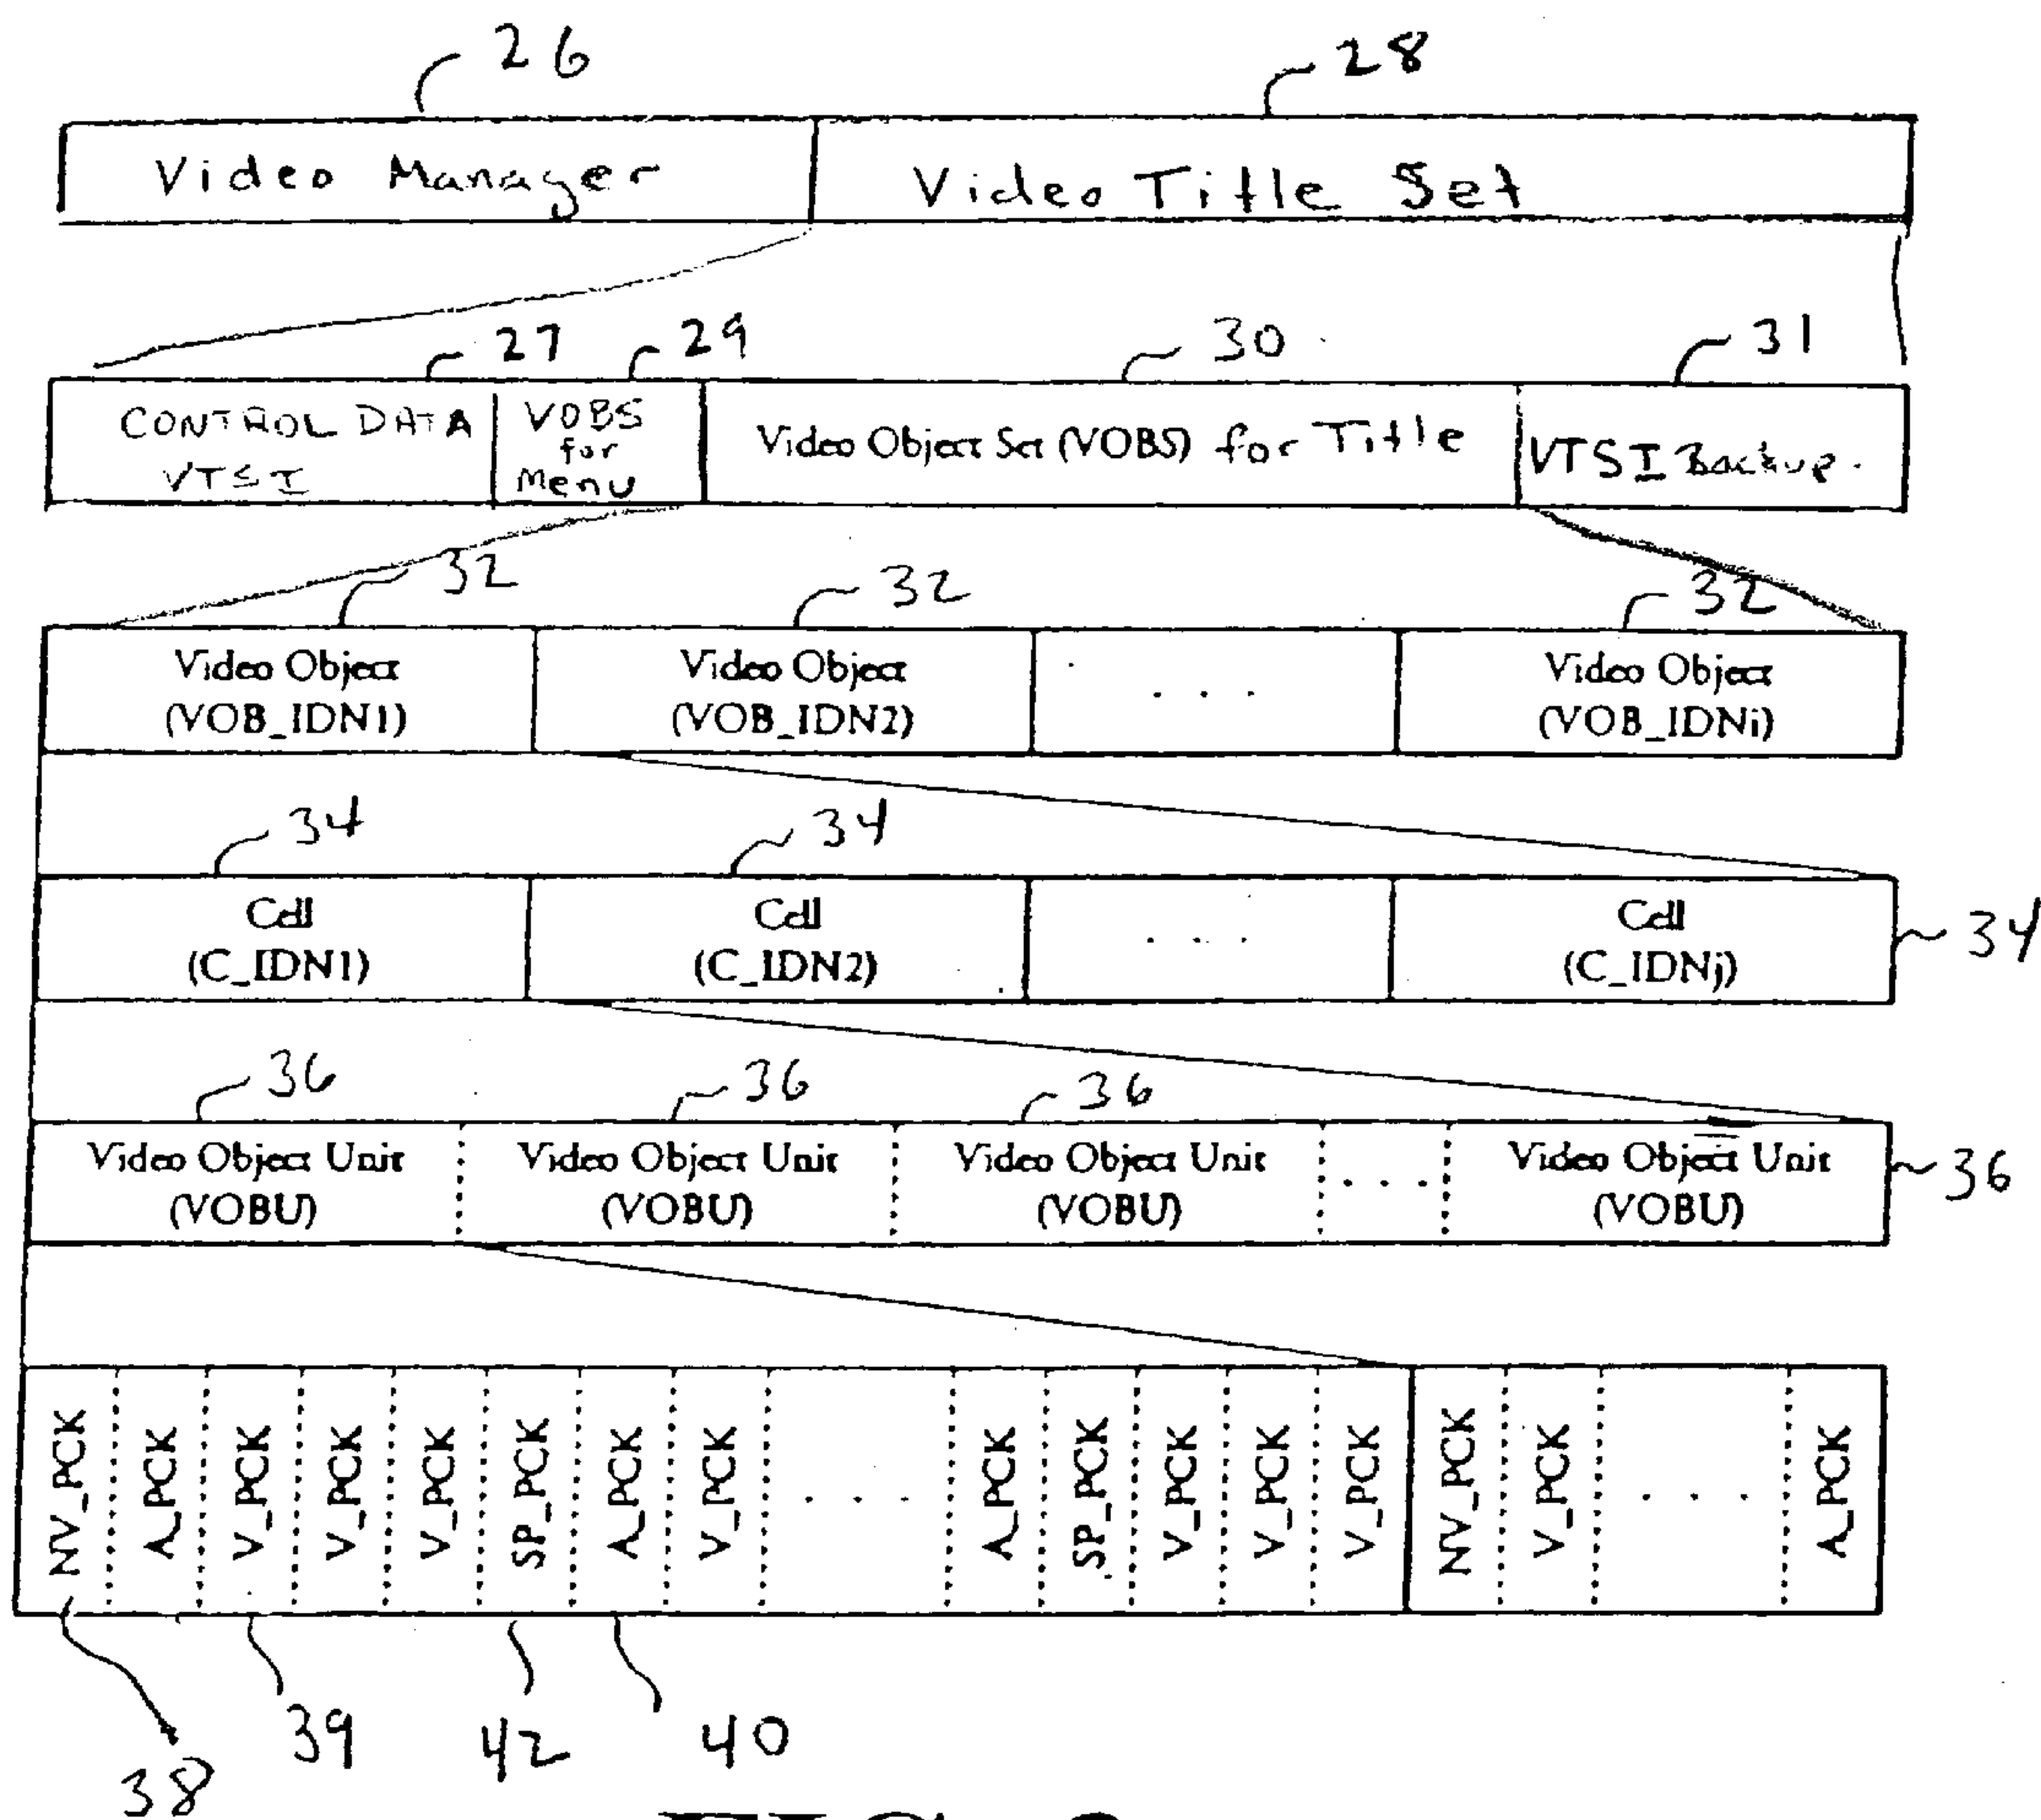 26 28
Video Manager Video Title Set
27 29 30 31
CONTROL DATA
VTSI
VOBS
for
Menu
Video Object Set (VOBS) for Title
VTSI Backup.
32 32 32
Video Object
(VOB_IDN1)
Video Object
(VOB_IDN2)
. . .
Video Object
(VOB_IDNi)
34 34
Cell
(C_IDN1)
Cell
(C_IDN2)
. . .
Cell
(C_IDNj)
34
36 36 36
Video Object Unit
(VOBU)
Video Object Unit
(VOBU)
Video Object Unit
(VOBU)
. . .
Video Object Unit
(VOBU)
36
NV_PCK
A_PCK
V_PCK
V_PCK
V_PCK
SP_PCK
A_PCK
V_PCK
. . . .
A_PCK
SP_PCK
V_PCK
V_PCK
V_PCK
NV_PCK
V_PCK
. . . .
A_PCK
38 39 42 40